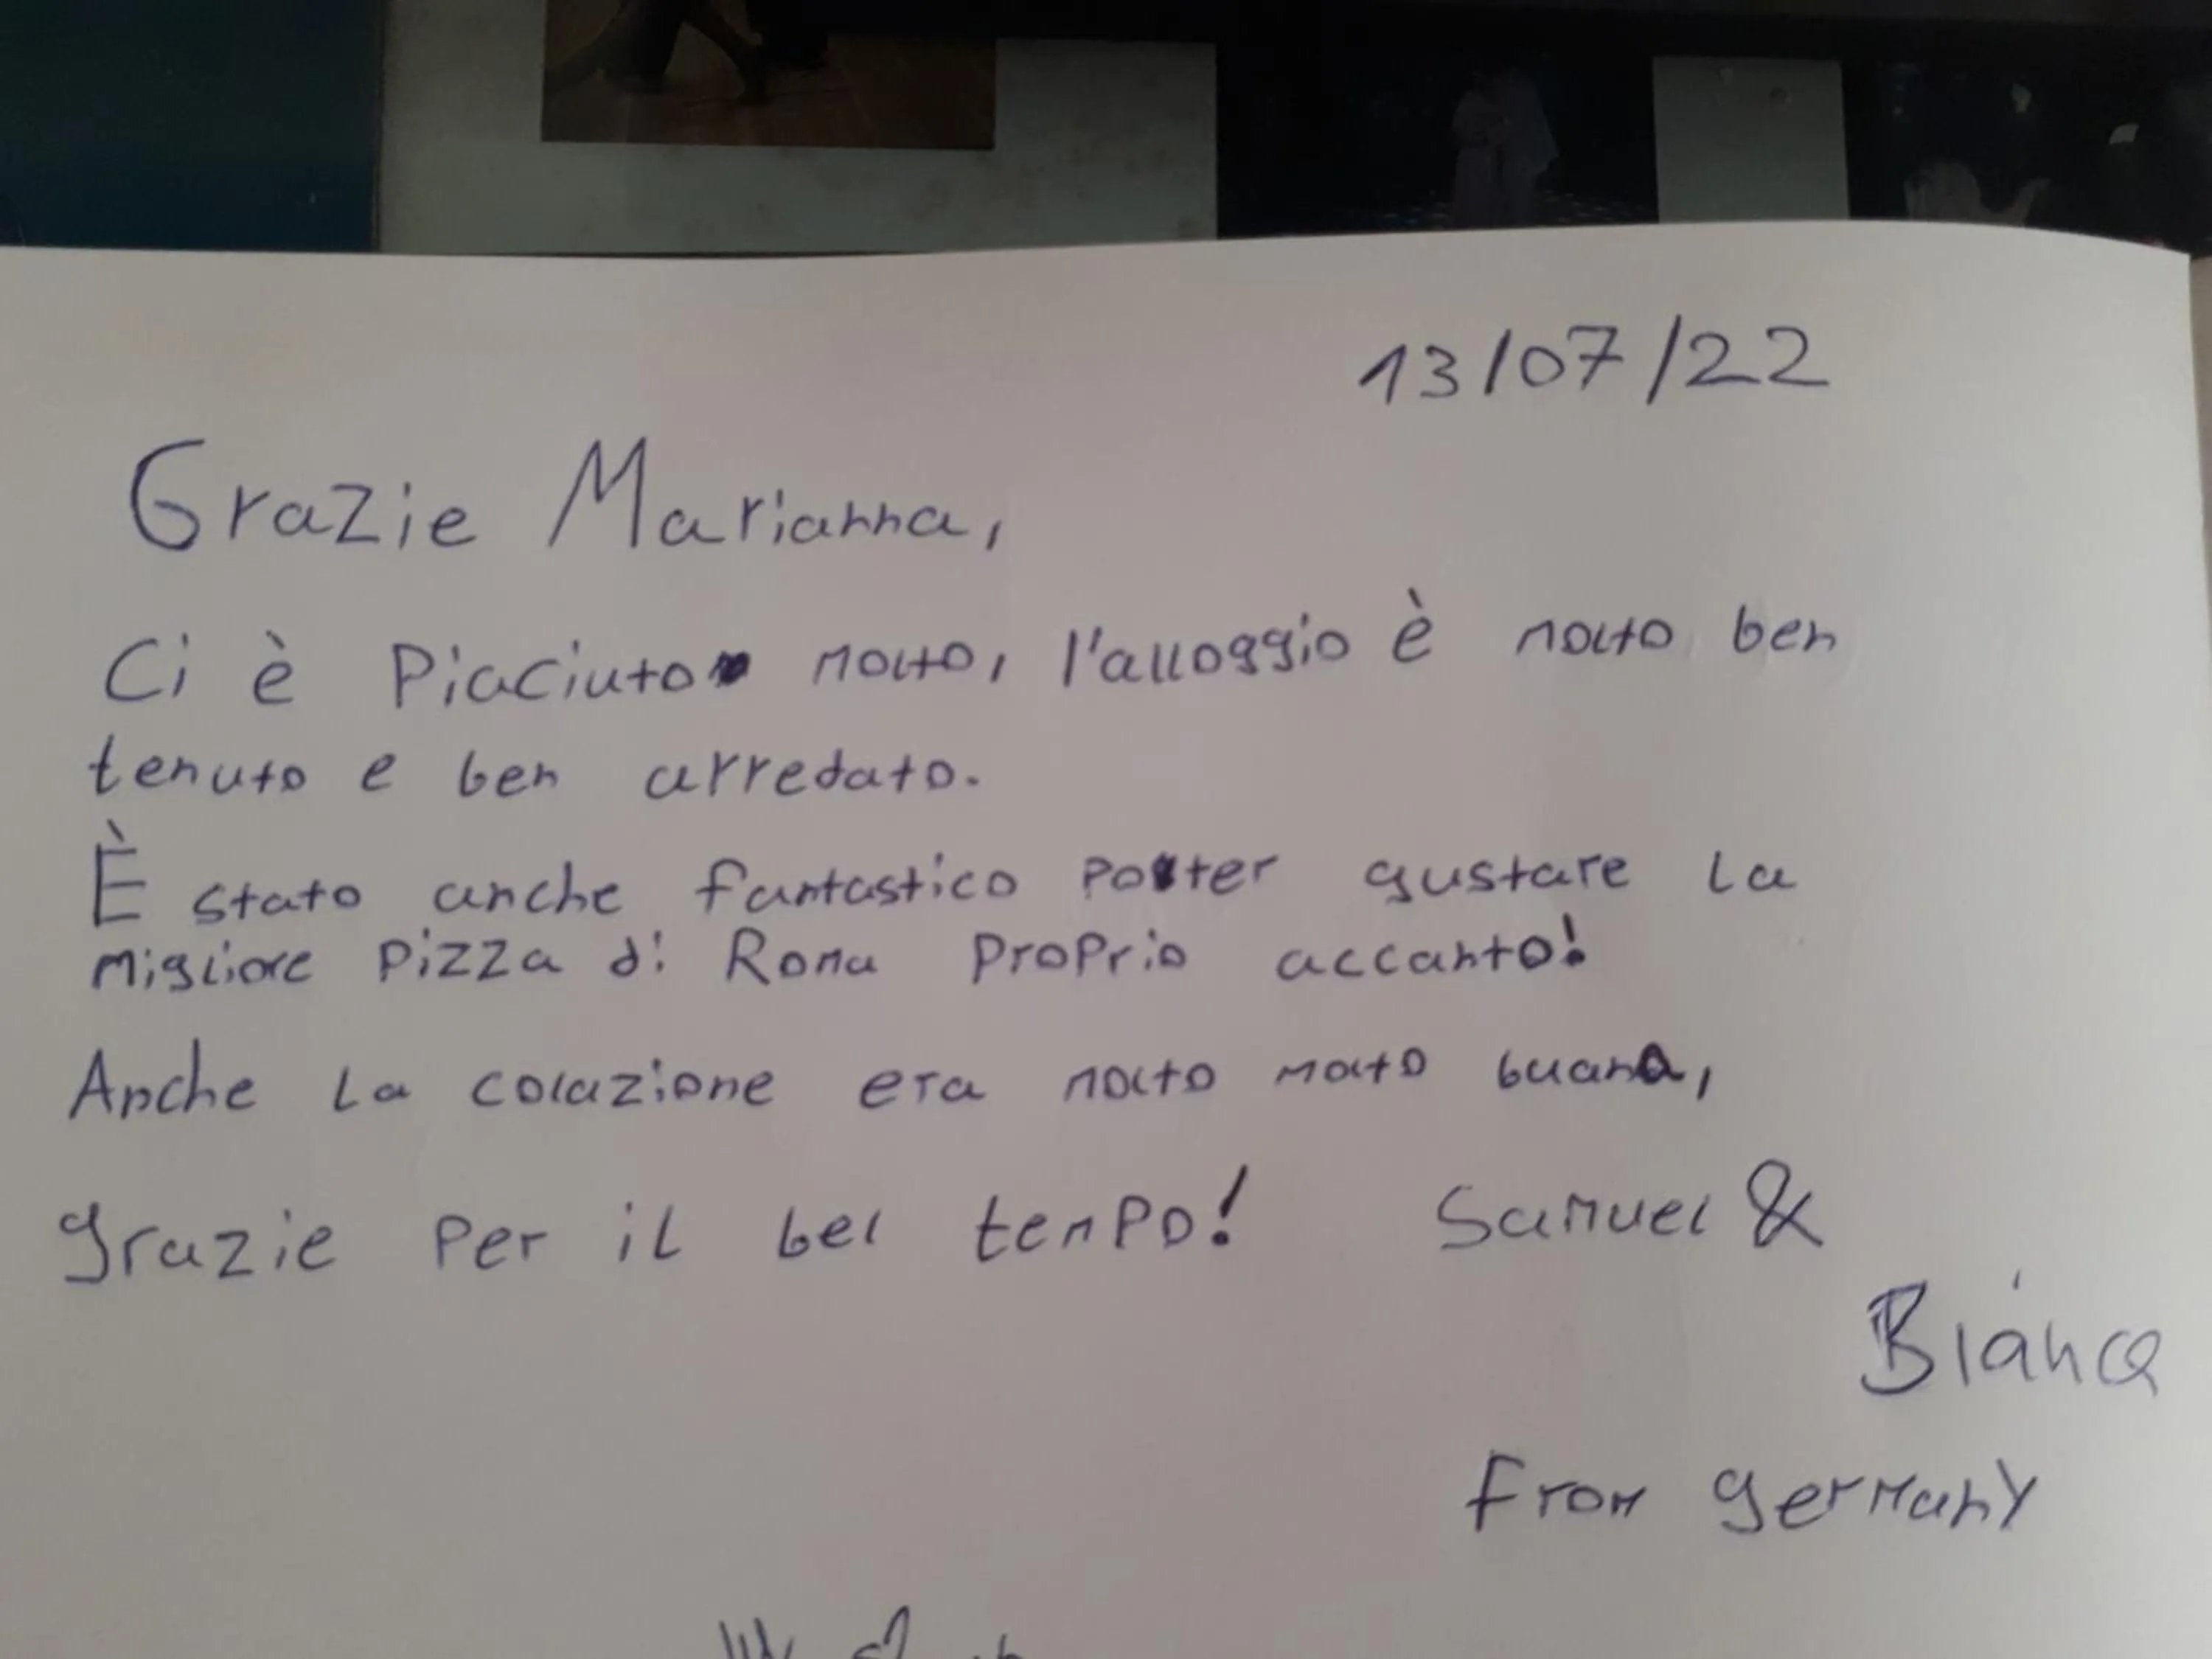 13/07/22
Grazie Marianna,
Ci è Piaciuto molto, l'alloggio è molto ben
tenuto e ben arredato.
È stato anche fantastico poter gustare la
migliore pizza di Roma proprio accanto!
Anche la colazione era molto molto buona,
grazie per il bel tempo! Samuel &
Bianca
From germany